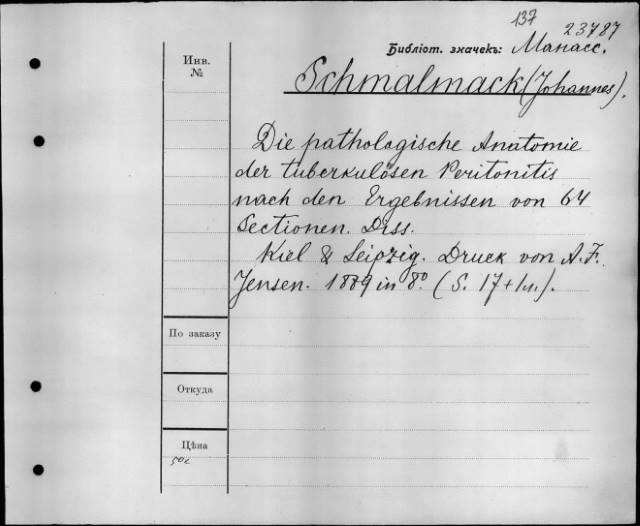 137
23787
Библіот. значекъ: Манасс.
Инв. №
Schmalmack (Johannes).
Die pathologische Anatomie
der tuberkulösen Peritonitis
nach den Ergebnissen von 64
Sectionen. Diss.
Kiel & Leipzig. Druck von A. F.
Jensen. 1889 in 8°. (S. 17+1н.).
По заказу
Откуда
Цѣна
50к